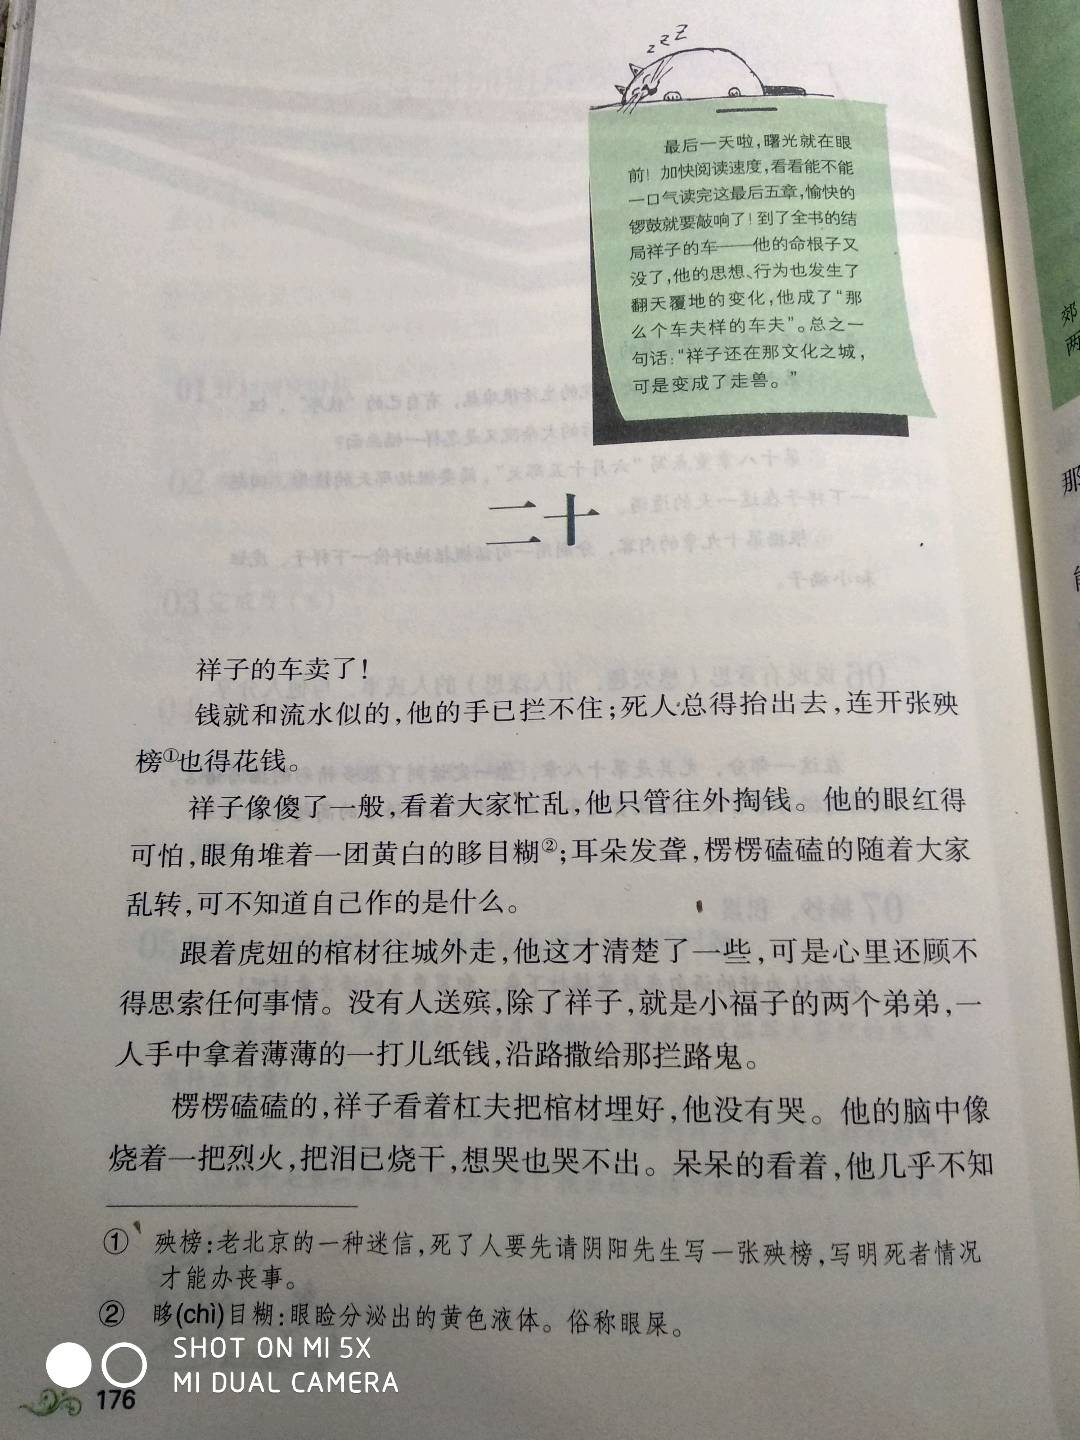 z z Z
最后一天啦，曙光就在眼
前！加快阅读速度，看看能不能
一口气读完这最后五章，愉快的
锣鼓就要敲响了！到了全书的结
局祥子的车——他的命根子又
没了，他的思想、行为也发生了
翻天覆地的变化，他成了“那
么个车夫样的车夫”。总之一
句话：“祥子还在那文化之城，
可是变成了走兽。”
二十
祥子的车卖了！
钱就和流水似的，他的手已拦不住；死人总得抬出去，连开张殃
榜①也得花钱。
祥子像傻了一般，看着大家忙乱，他只管往外掏钱。他的眼红得
可怕，眼角堆着一团黄白的眵目糊②；耳朵发聋，楞楞磕磕的随着大家
乱转，可不知道自己作的是什么。
跟着虎妞的棺材往城外走，他这才清楚了一些，可是心里还顾不
得思索任何事情。没有人送殡，除了祥子，就是小福子的两个弟弟，一
人手中拿着薄薄的一打儿纸钱，沿路撒给那拦路鬼。
楞楞磕磕的，祥子看着杠夫把棺材埋好，他没有哭。他的脑中像
烧着一把烈火，把泪已烧干，想哭也哭不出。呆呆的看着，他几乎不知
① 殃榜：老北京的一种迷信，死了人要先请阴阳先生写一张殃榜，写明死者情况
才能办丧事。
② 眵(chì)目糊：眼睑分泌出的黄色液体。俗称眼屎。
SHOT ON MI 5X
MI DUAL CAMERA
176
郊
两
那